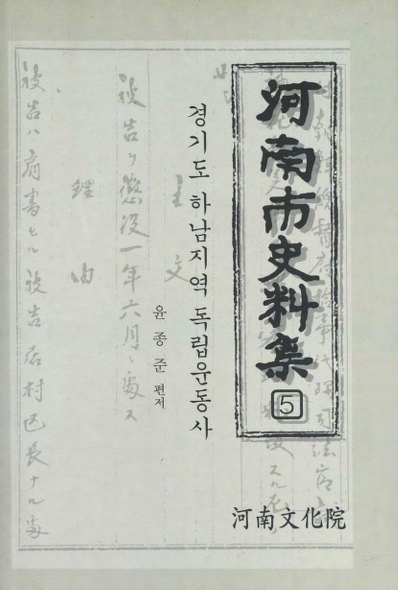 河南市史料集 5
경기도 하남지역 독립운동사
윤종준 편저
河南文化院
主文
被告ヲ懲役一年六月ニ處ス
理由
被告ハ肩書セル被告居村區長ナル處